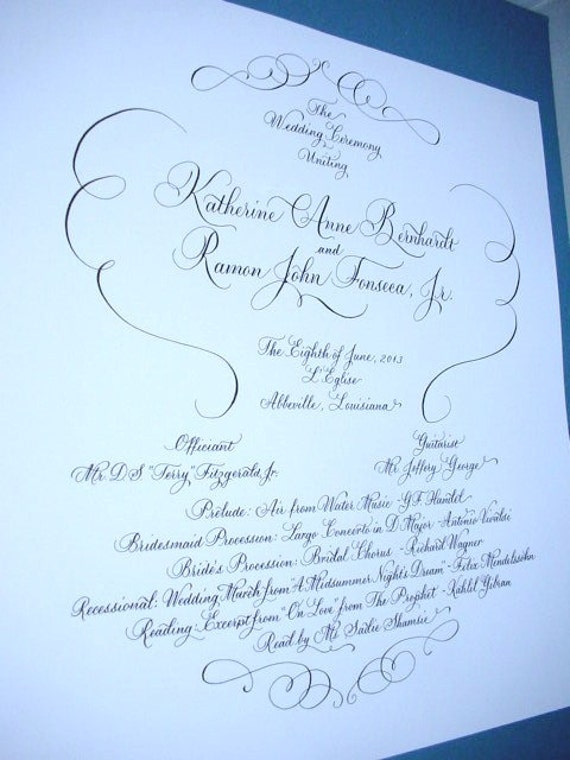 The
Wedding Ceremony
Uniting
Katherine Anne Bernhardt
and
Ramon John Fonseca, Jr.
The Eighth of June, 2013
L'Eglise
Abbeville, Louisiana
Officiant
Mr. D.S "Terry" Fitzgerald, Jr.
Guitarist
Mr. Jeffery George
Prelude: Air from Water Music - G.F. Handel
Bridesmaid Procession: Largo Concerto in D Major - Antonio Vivaldi
Bride's Procession: Bridal Chorus - Richard Wagner
Recessional: Wedding March from "A Midsummer Night's Dream" - Felix Mendelssohn
Reading: Excerpt from "On Love" from The Prophet - Kahlil Gibran
Read by Ms. Sadie Shamsie